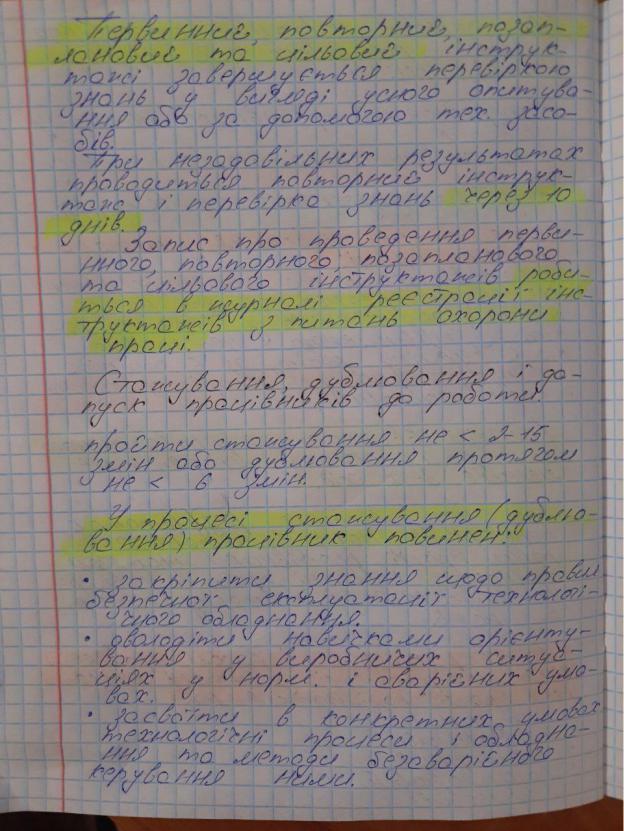 Первинний, повторний, позап-
лановий та цільовий інструк-
тажі завершується перевіркою
знань у вигляді усного опитува-
ння або за допомогою тех. засо-
бів.
При незадовільних результатах
проводиться повторний інструк-
таж і перевірка знань через 10
днів.
Запис про проведення перви-
нного, повторного позапланового
та цільового інструктажів роби-
ться в журналі реєстрації інс-
труктажів з питань охорони
праці.
Стажування, дублювання і до-
пуск працівників до роботи
пройти стажування не < 2-15
змін або дублювання протягом
не < 6 змін.
У процесі стажування (дублю-
вання) працівник повинен:
· закріпити знання щодо правил
безпечної експлуатації технологі-
чного обладнання.
· оволодіти навичками орієнту-
вання у виробничих ситуа-
ціях у норм. і аварійних умо-
вах.
· засвоїти в конкретних умовах
технологічні процеси і обладна-
ння та методи безаварійного
керування ними.